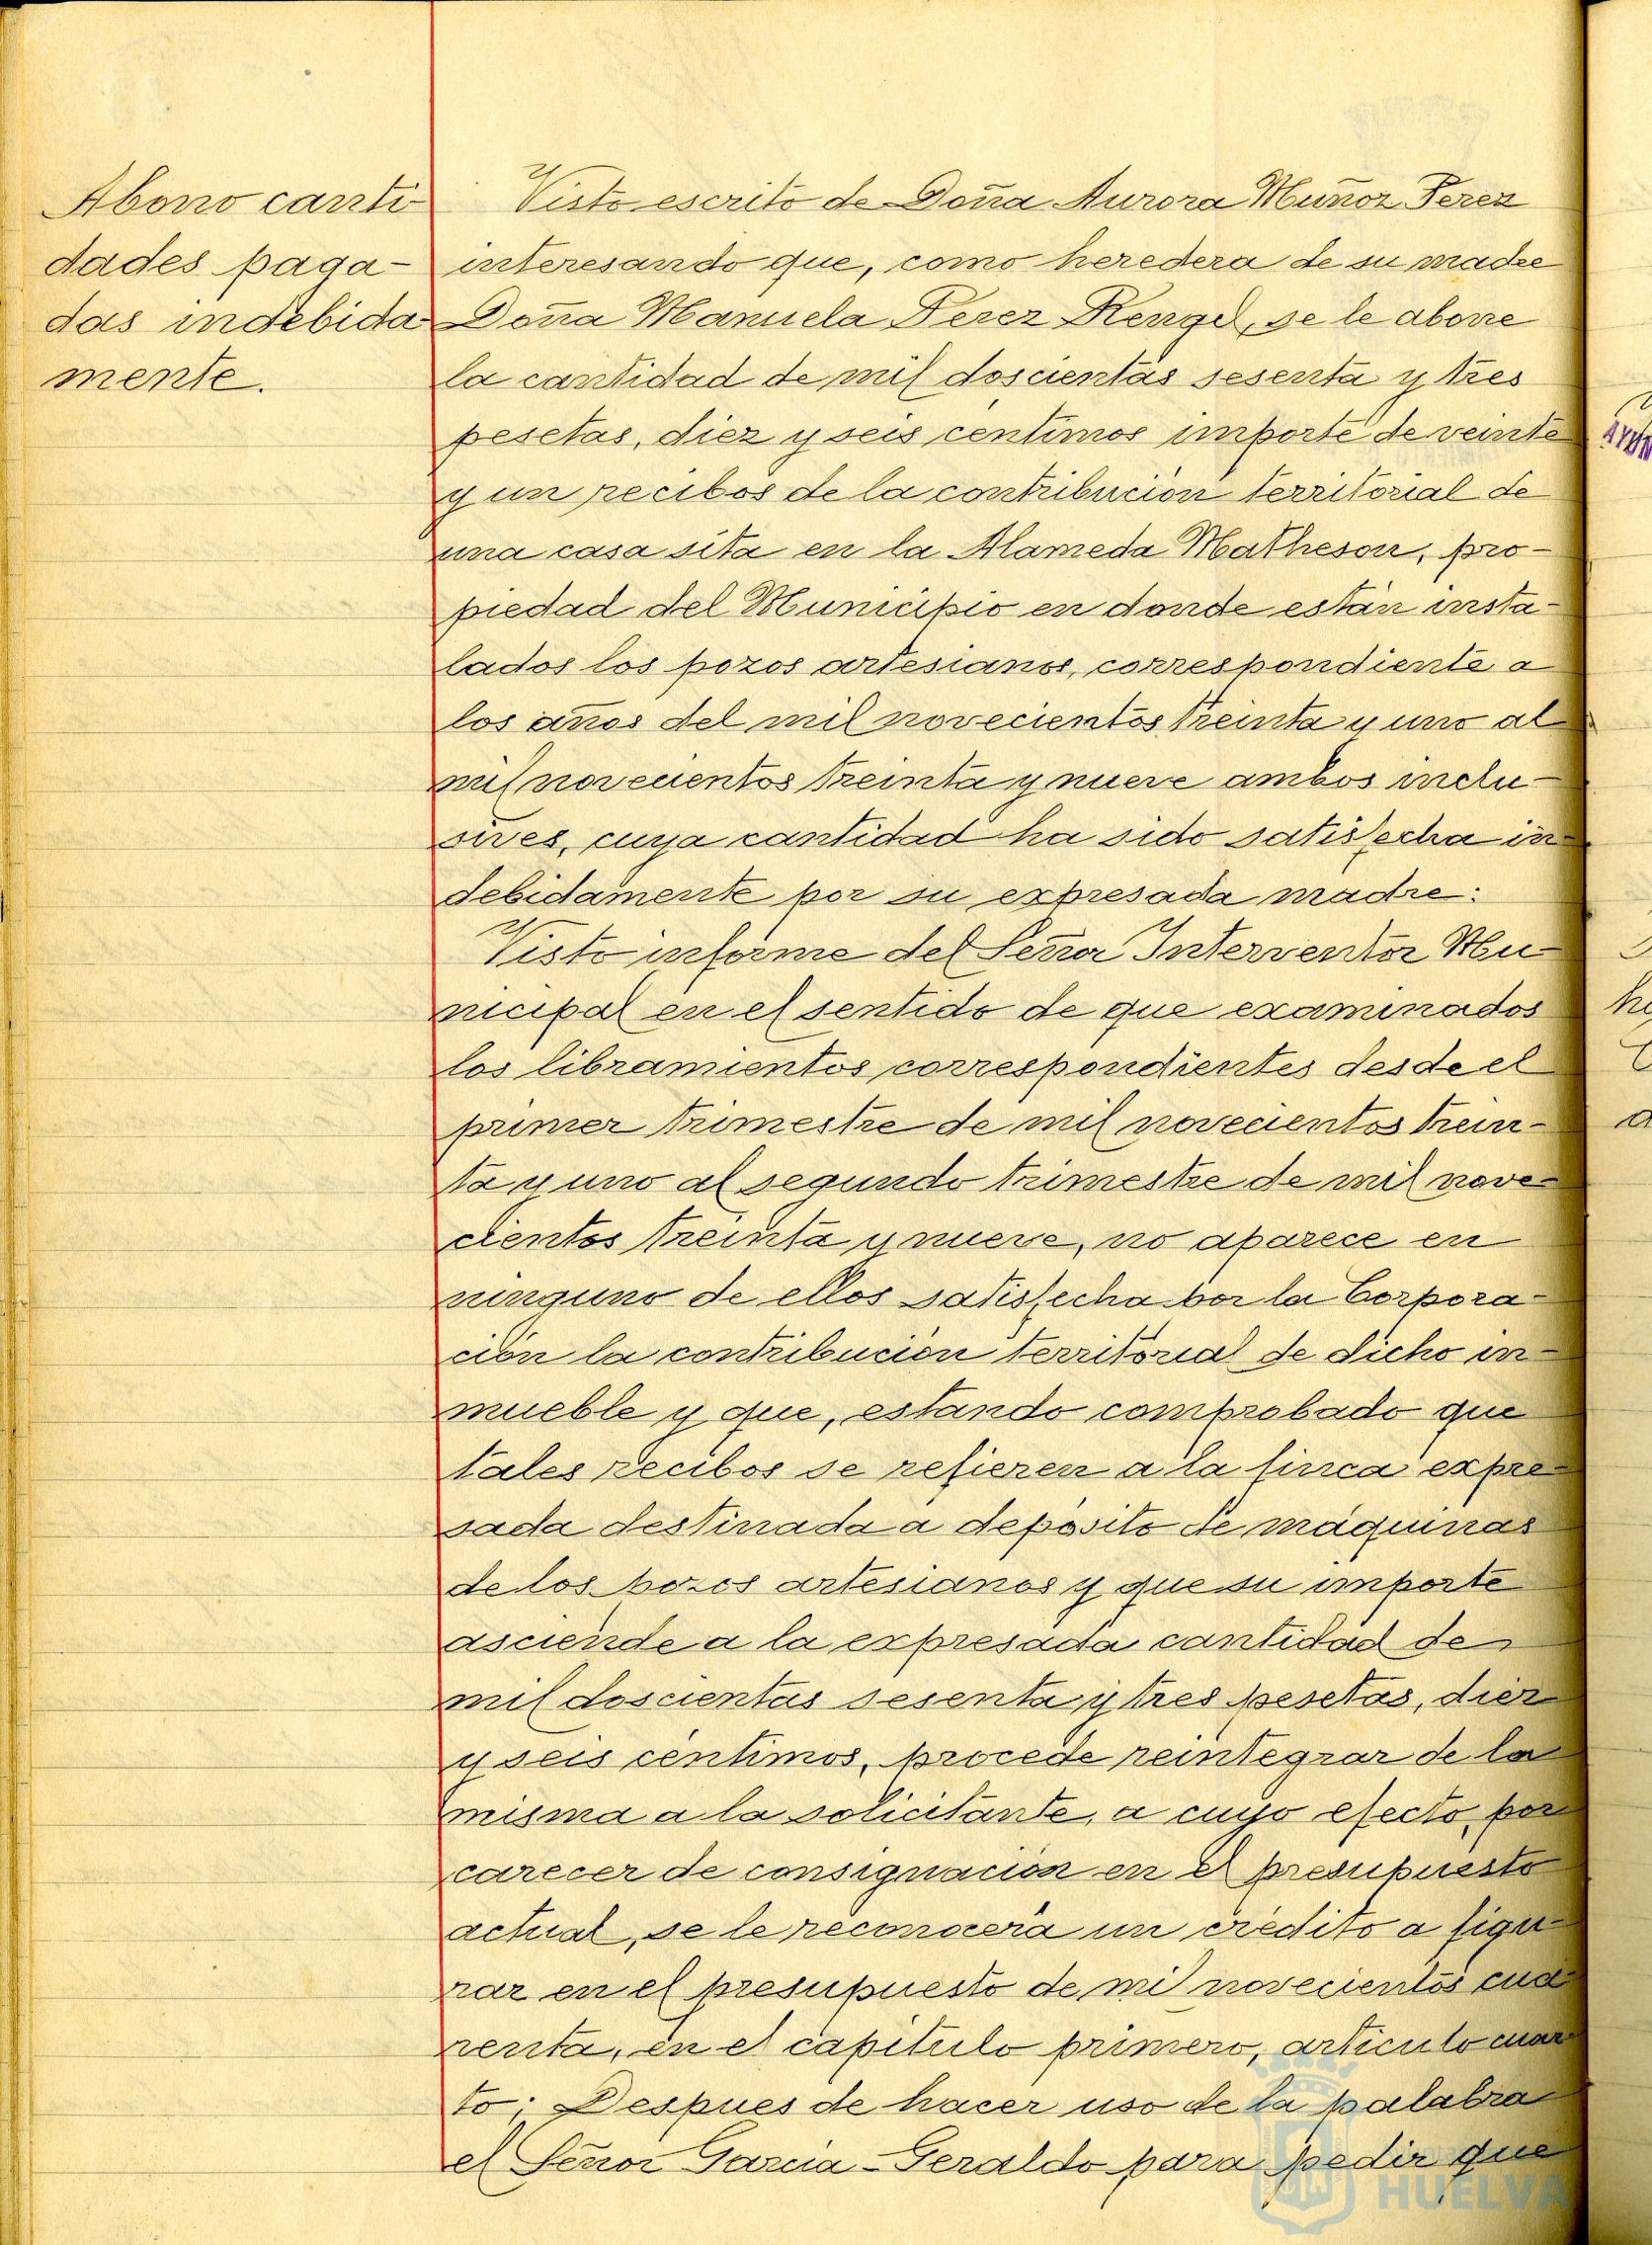 Abono canti-
dades paga-
das indebida
mente.
Visto escrito de Doña Aurora Muñoz Perez
interesando que, como heredera de su madre
Doña Manuela Perez Rengel, se le abone
la cantidad de mil doscientas sesenta y tres
pesetas, diez y seis centimos importe de veinte
y un recibos de la contribución territorial de
una casa sita en la Alameda Matheson, pro-
piedad del Municipio en donde están insta-
lados los pozos artesianos, correspondiente a
los años del mil novecientos treinta y uno al
mil novecientos treinta y nueve ambos inclu-
sives, cuya cantidad ha sido satisfecha in-
debidamente por su expresada madre:
Visto informe del Señor Interventor Mu-
nicipal en el sentido de que examinados
los libramientos correspondientes desde el
primer trimestre de mil novecientos trein-
ta y uno al segundo trimestre de mil nove-
cientos treinta y nueve, no aparece en
ninguno de ellos satisfecha por la Corpora-
ción la contribución territorial de dicho in-
mueble y que, estando comprobado que
tales recibos se refieren a la finca expre-
sada destinada a depósito de máquinas
de los pozos artesianos y que su importe
asciende a la expresada cantidad de
mil doscientas sesenta y tres pesetas, diez
y seis centimos, procede reintegrar de la
misma a la solicitante, a cuyo efecto, por
carecer de consignación en el presupuesto
actual, se le reconocerá un crédito a figu-
rar en el presupuesto de mil novecientos cua-
renta, en el capítulo primero, artículo cuar-
to; Despues de hacer uso de la palabra
el Señor Garcia-Geraldo para pedir que
HUELVA